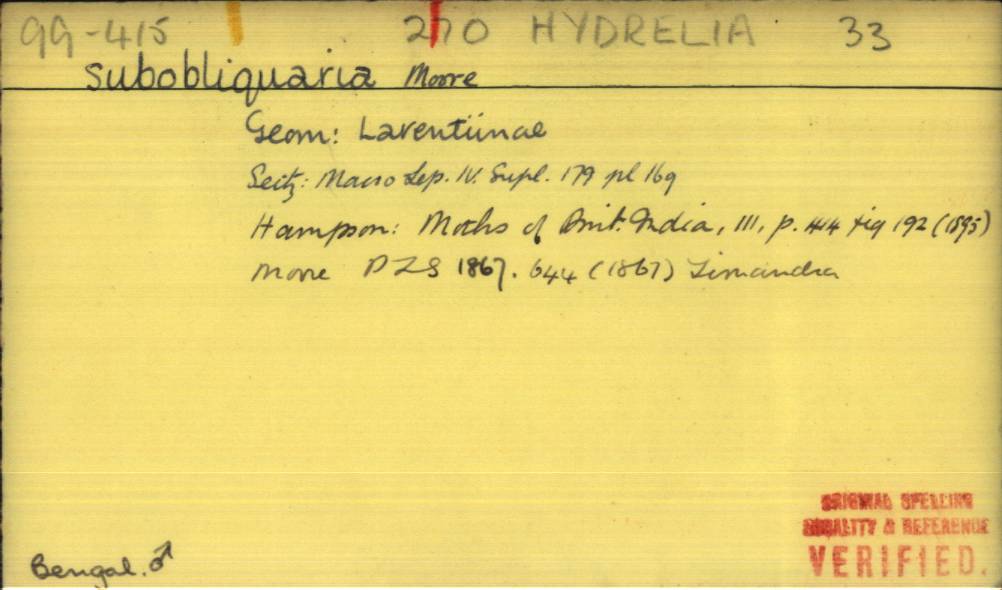 99-415 270 HYDRELIA 33
subobliquaria Moore
Geom: Larentiinae
Seitz: Macro Lep. IV. Supl. 179 pl 16g
Hampson: Moths of Brit. India, III, p. 414 fig 192 (1895)
Moore PZS 1867. 644 (1867) Timandra
ORIGINAL SPELLING
LOCALITY & REFERENCE
VERIFIED.
Bengal. ♂